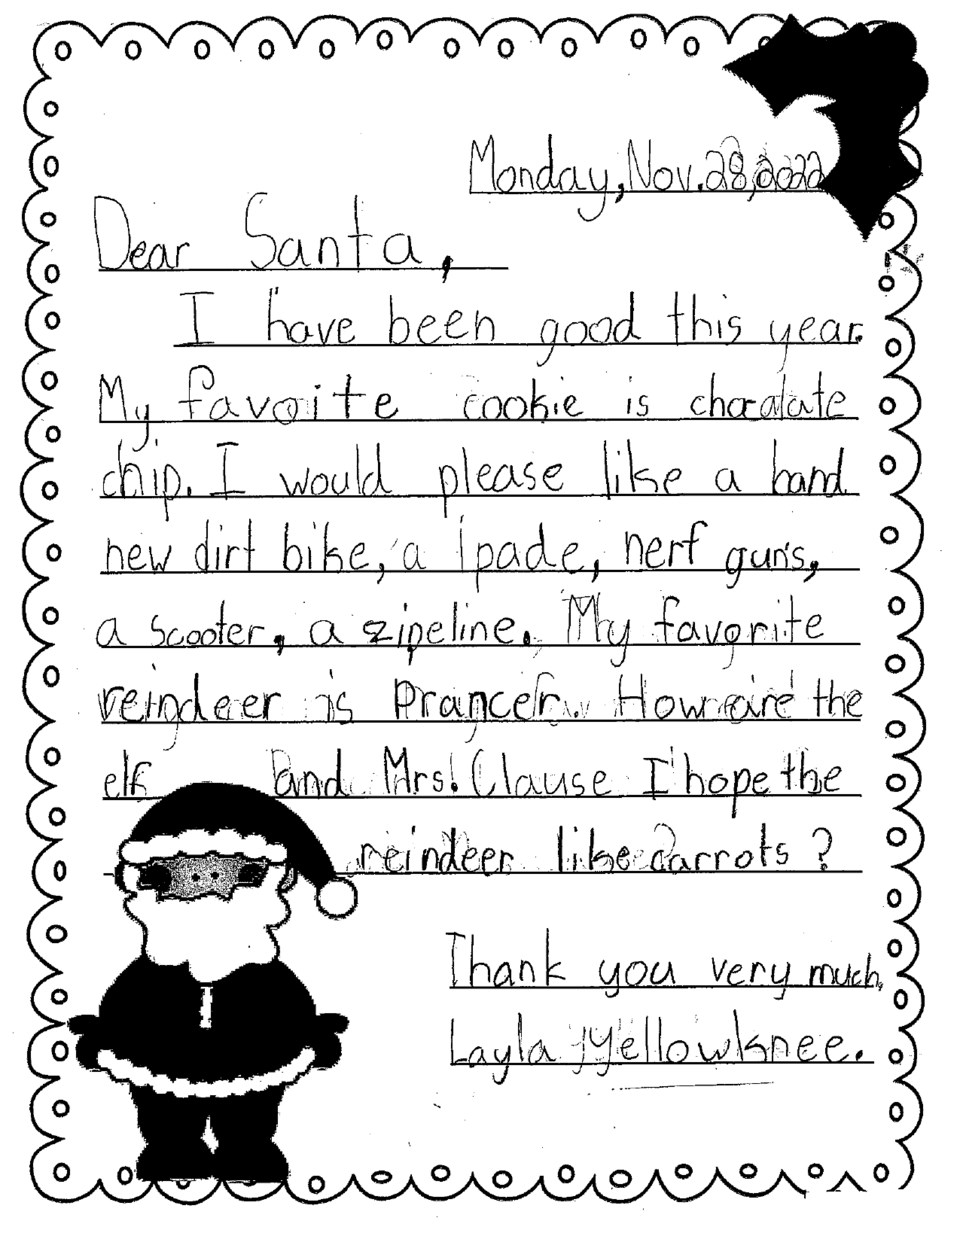 Monday, Nov. 28, 2022
Dear Santa,
I have been good this year.
My favoite cookie is chocalate
chip. I would please like a band
new dirt bike, a ipade, nerf guns,
a scooter, a zipeline. My favorite
reindeer is Prancer. How are the
elf and Mrs. Clause I hope the
reindeer like carrots ?
Thank you very much,
Layla Yellowknee.